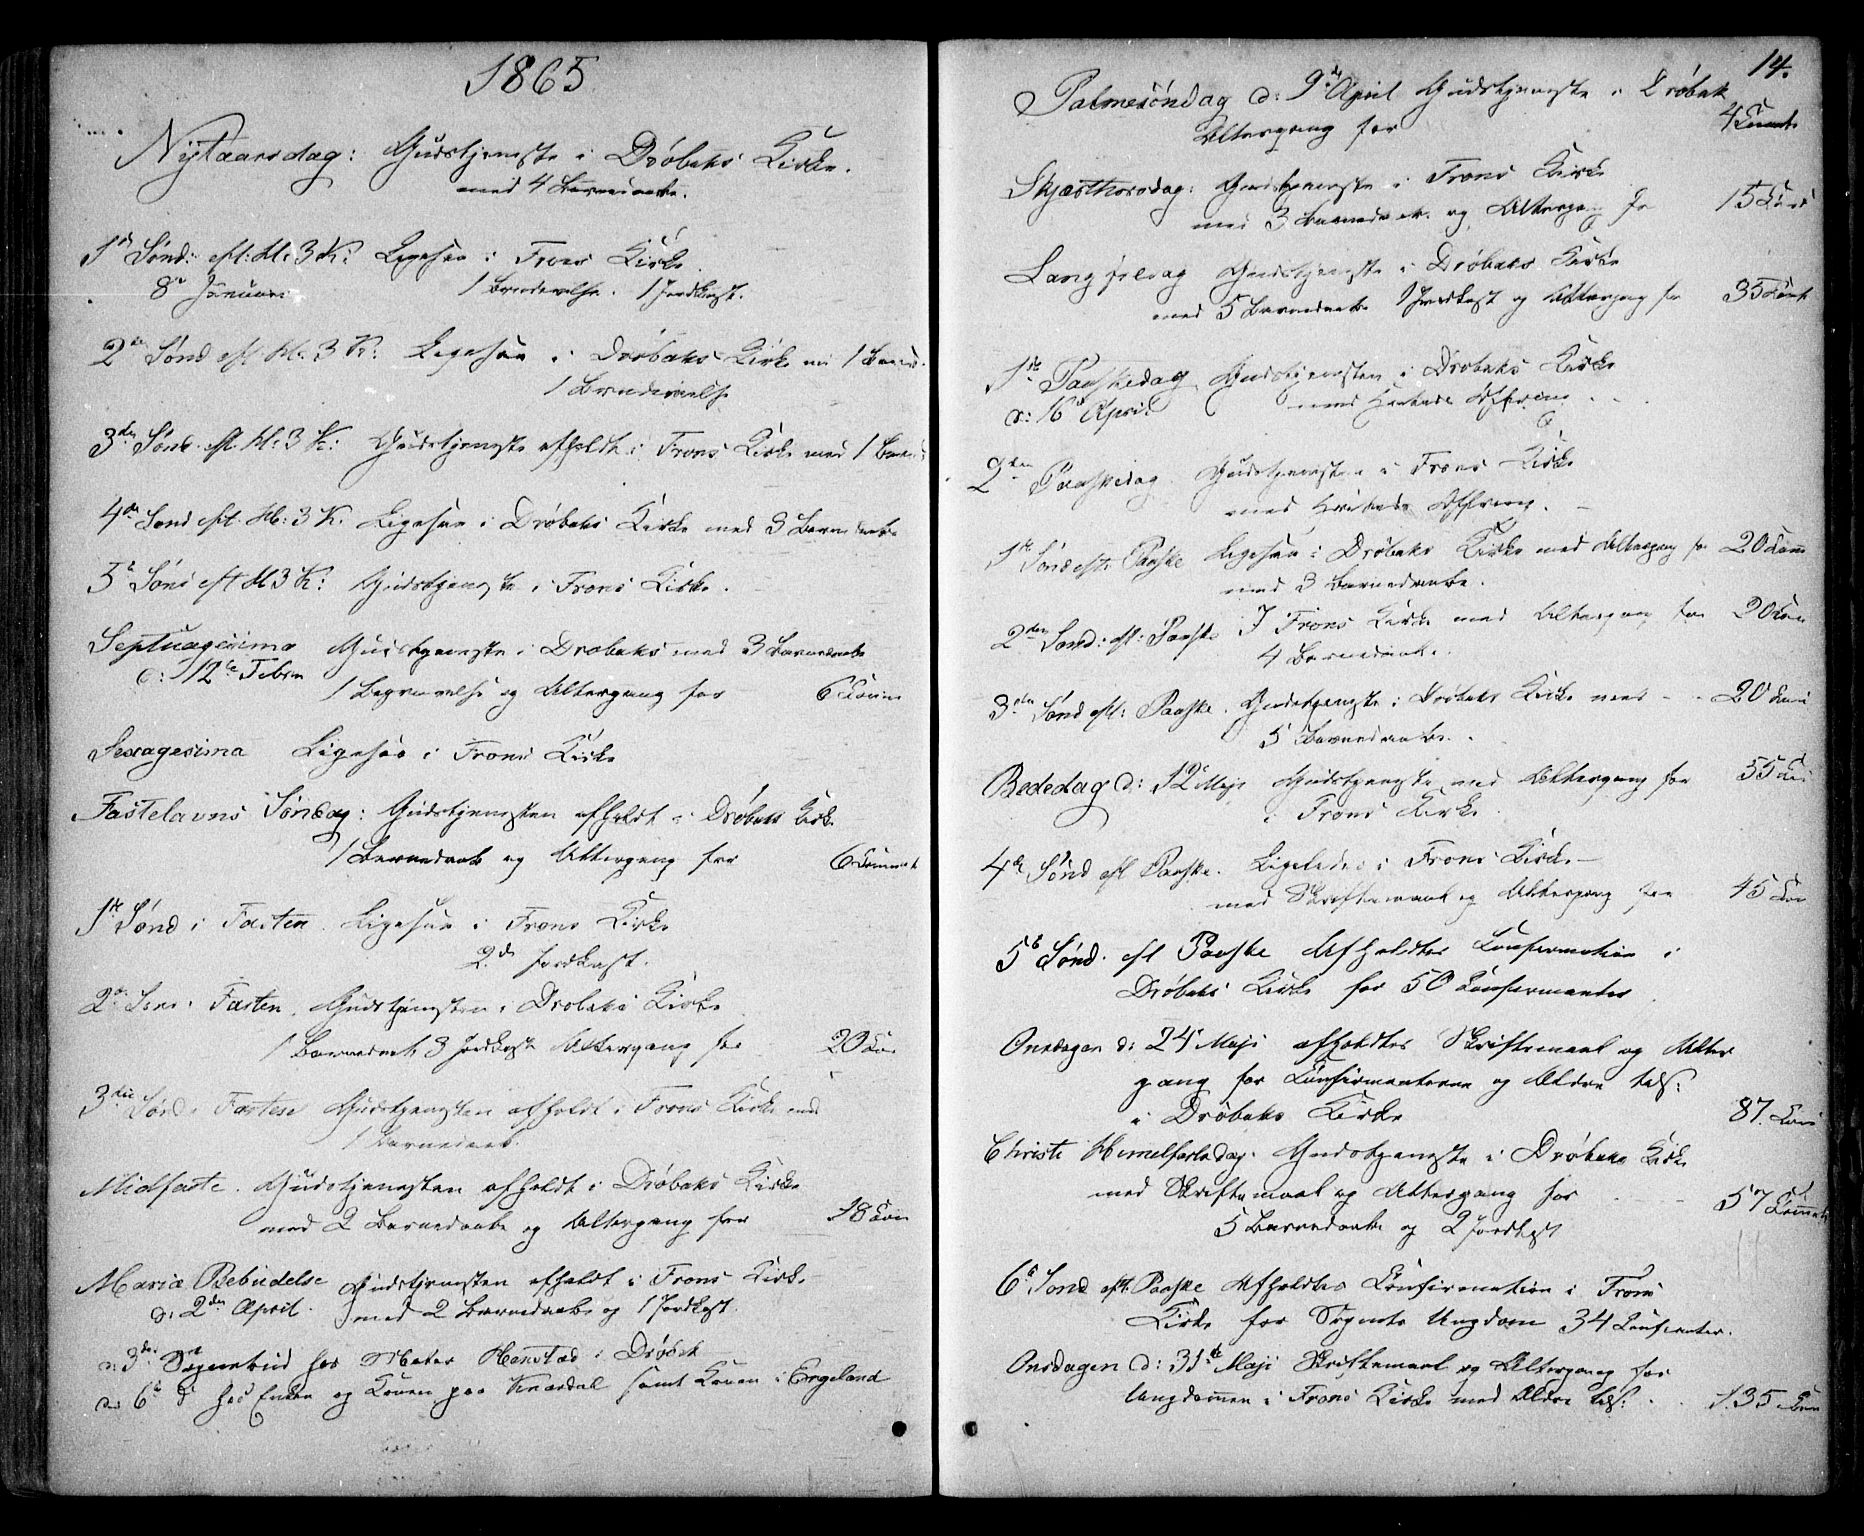 1865
Nytaarsdag: Gudstjeneste i Drøbaks Kirke.
med 4 Barnedaabe.
1st Sønd: eft: H: 3 K: Ligesaa i Frons Kirke
8de Januar 1 Barnedaab. 1 Jordkast.
2den Sønd eft H: 3 K: Ligesaa i Drøbaks Kirke m 1 Barned.
3den Sønd. eft. H: 3 K: Gudstjeneste afholdt i Frons Kirke med 1 Barned
4de Sønd eft. H: 3 K. Ligesaa i Drøbaks Kirke med 3 Barnedaabe
5te Sønd eft H 3 K: Gudstjeneste i Frons Kirke.
Septuagesima Gudstjeneste i Drøbaks med 3 Barnedaabe
d: 12te Febru 1 Begravelse og Altergang for 6 Comm
Sexagesima Ligesaa i Frons Kirke
Fastelavns Søndag: Gudstjenesten afholdt i Drøbaks Kirke
1 Barnedaab og Altergang for 6 Communik
1ste Sønd i Fasten. Ligesaa i Frons Kirke
2de Jordkast.
2den Sønd i Fasten. Gudstjenesten i Drøbaks Kirke
1 Barnedaab 3 Jordkast Altergang for 20 Com
3die Sønd i Fasten Gudstjenesten afholdt i Frons Kirke med
1 Barnedaab.
Midfaste. Gudstjenesten afholdt i Drøbaks Kirke
med 2 Barnedaabe og Altergang for 18 Com
Mariæ Bebudelse Gudstjenesten afholdt i Frons Kirke
d: 2den April. med 2 Barnedaabe og 1 Jordkast.
d: 3die Sognebud hos Mater Hanstad i Drøbak
d: 6te do hos Enken og Konen paa Knardal samt Konen i Engeland
14.
Palmesøndag d: 9de April Gudstjeneste i Drøbak
Altergang for 4 Comm
Skjærthorsdag: Gudstjeneste i Frons Kirke
med 3 Barnedaabe og Altergang for 15 Com
Langfredag Gudstjeneste i Drøbaks Kirke
med 5 Barnedaabe 1 Jordkast og Altergang for 35 Com
1ste Paaskedag Gudstjenesten i Drøbaks Kirke
d: 16de April med Høitids Offring
2den Paaskedag. Gudstjenesten i Frons Kirke
med Høitids Offring.
1ste Sønd eft: Paaske Ligesaa i Drøbaks Kirke med Altergang for 20 Comm
med 3 Barnedaabe.
2den Sønd: eft: Paaske I Frons Kirke med Altergang for 20 Com
4 Barnedaabe.
3die Sønd eft: Paaske. Gudstjeneste i Drøbaks Kirke med 20 Com
5 Barnedaabe.
Bededag d: 12te Maji Gudstjeneste med Altergang for 55 Co
i Frons Kirke
4de Sønd eft Paaske. Ligeledes i Frons Kirke
med Skriftemaal og Altergang for 45 Com
5te Sønd. eft Paaske Afholdtes Confirmation i
Drøbaks Kirke for 50 Confirmanter.
Onsdagen d: 24de Maji afholdtes Skriftemaal og Alter
gang for Confirmanterne og Ældre tils:
i Drøbaks Kirke 87. Com
Christi Himelfartsdag. Gudstjeneste i Drøbaks Kirke
med Skriftemaal og Altergang for 57 Comm
5 Barnedaabe og 2 Jordkast
6te Sønd eft. Paaske Afholdtes Confirmation i Frons
Kirke for Sognets Ungdom 34 Confirmanter.
Onsdagen d: 31te Maji Skriftemaal og Altergang for
Ungdommen i Frons Kirke med Ældre tils: 135 Com